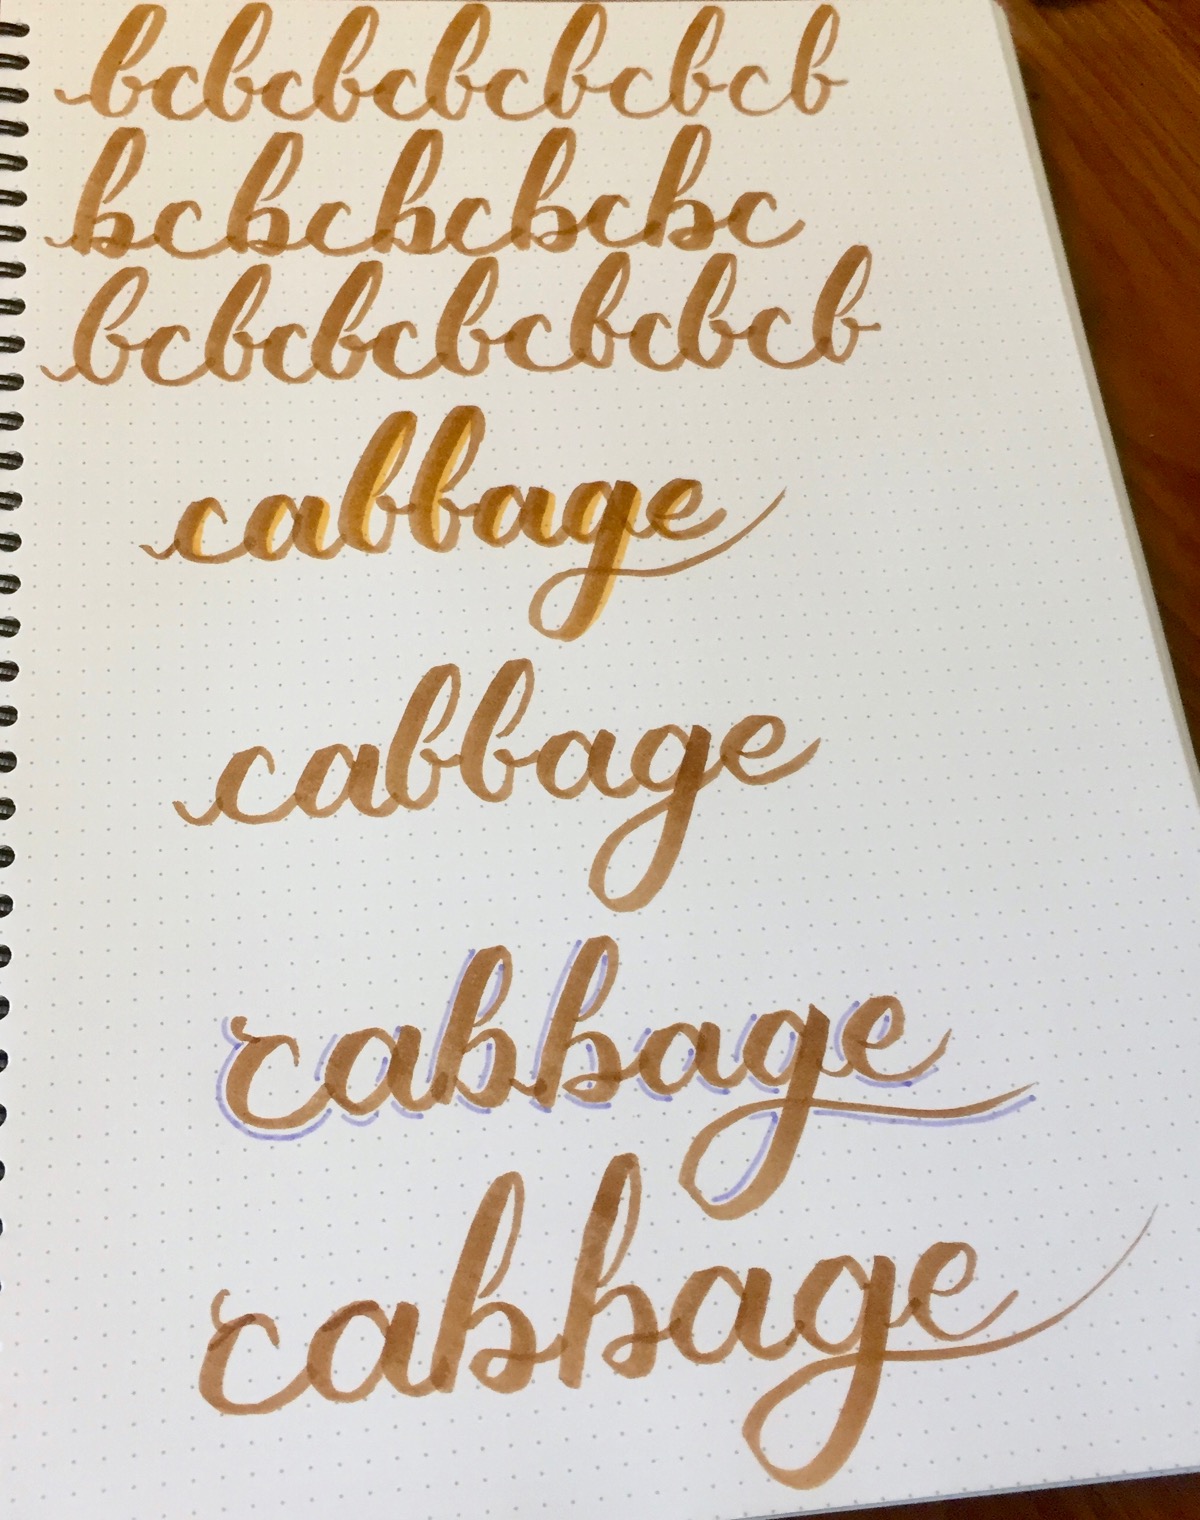 bcbcbcbcbcbcb
bcbcbcbcbc
bcbcbcbcbcbcb
cabbage
cabbage
cabbage
cabbage